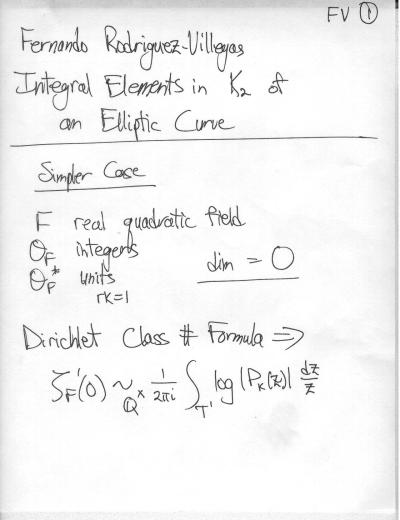 FV ①
Fernando Rodriguez-Villegas
Integral Elements in K₂ of
an Elliptic Curve
Simpler Case
F real quadratic field
O_F integers
O_F^* units
rk=1
dim = 0
Dirichlet Class # Formula ⇒
ζ_F'(0) ~_{Q^×} 1/2πi ∫_{T'} log |P_K(z)| dz/z